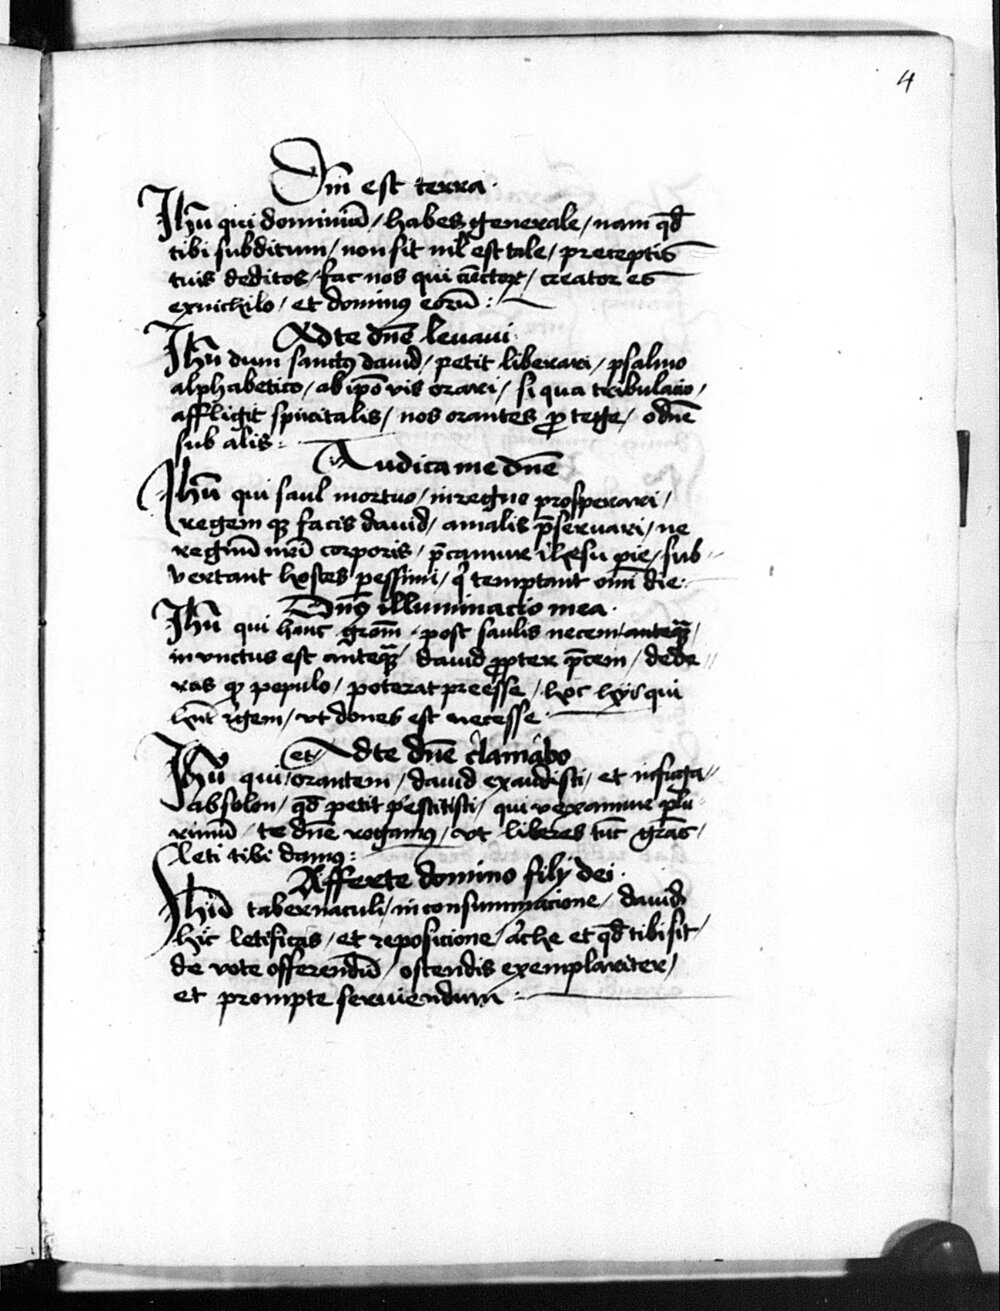 4
Dm̄ est terra·
Jhū qui dominiū / habes generale / nam qd̄
tibi subditum / non sit nil est tale / preceptis
tuis deditos / fac nos qui / creator es
exnichilo / et dominus eorū :
Ad te dn̄e levavi
Jhū dum sanctus david / petit liberari / psalmo
alphabetico / ab ip̄o vis orari / si qua tribulacio /
affligit spiritalis / nos orantes ꝓ tege / o dn̄e
sub alis :
Iudica me dn̄e
Jhū qui saul mortuo / in regno prosperari /
regem qꝫ facis david / a malis p̄servari / ne
regnū mei corporis / p̄camur ihesu pie / sub
vertant hostes pessimi / q̄ temptant om̄i die :
Dn̄s illuminacio mea ·
Jhū qui hanc · post saulis necem anteqꝫ /
in unctus est anteqꝫ / david ꝓpter p̄cem / dede
ras qꝫ populo / poterat preesse / hoc hijs qui
hn̄t regem / ut dones est necesse ·
Ad te dn̄e clamabo
Jhū qui / et orantem / david exaudisti / et in fuga
absolon / qd̄ petit p̄estitisti / qui vexamur plu
rimū / te dn̄e rogamus / ut liberes tūc grās /
leti tibi damus :
Afferte domino filij dei ·
Jhū tabernaculi / in consummacione / david
hic letificas / et reposicione / arche et qd̄ tibi sit /
de vote offerendū / ostendis exemplariter /
et prompte serviendum :